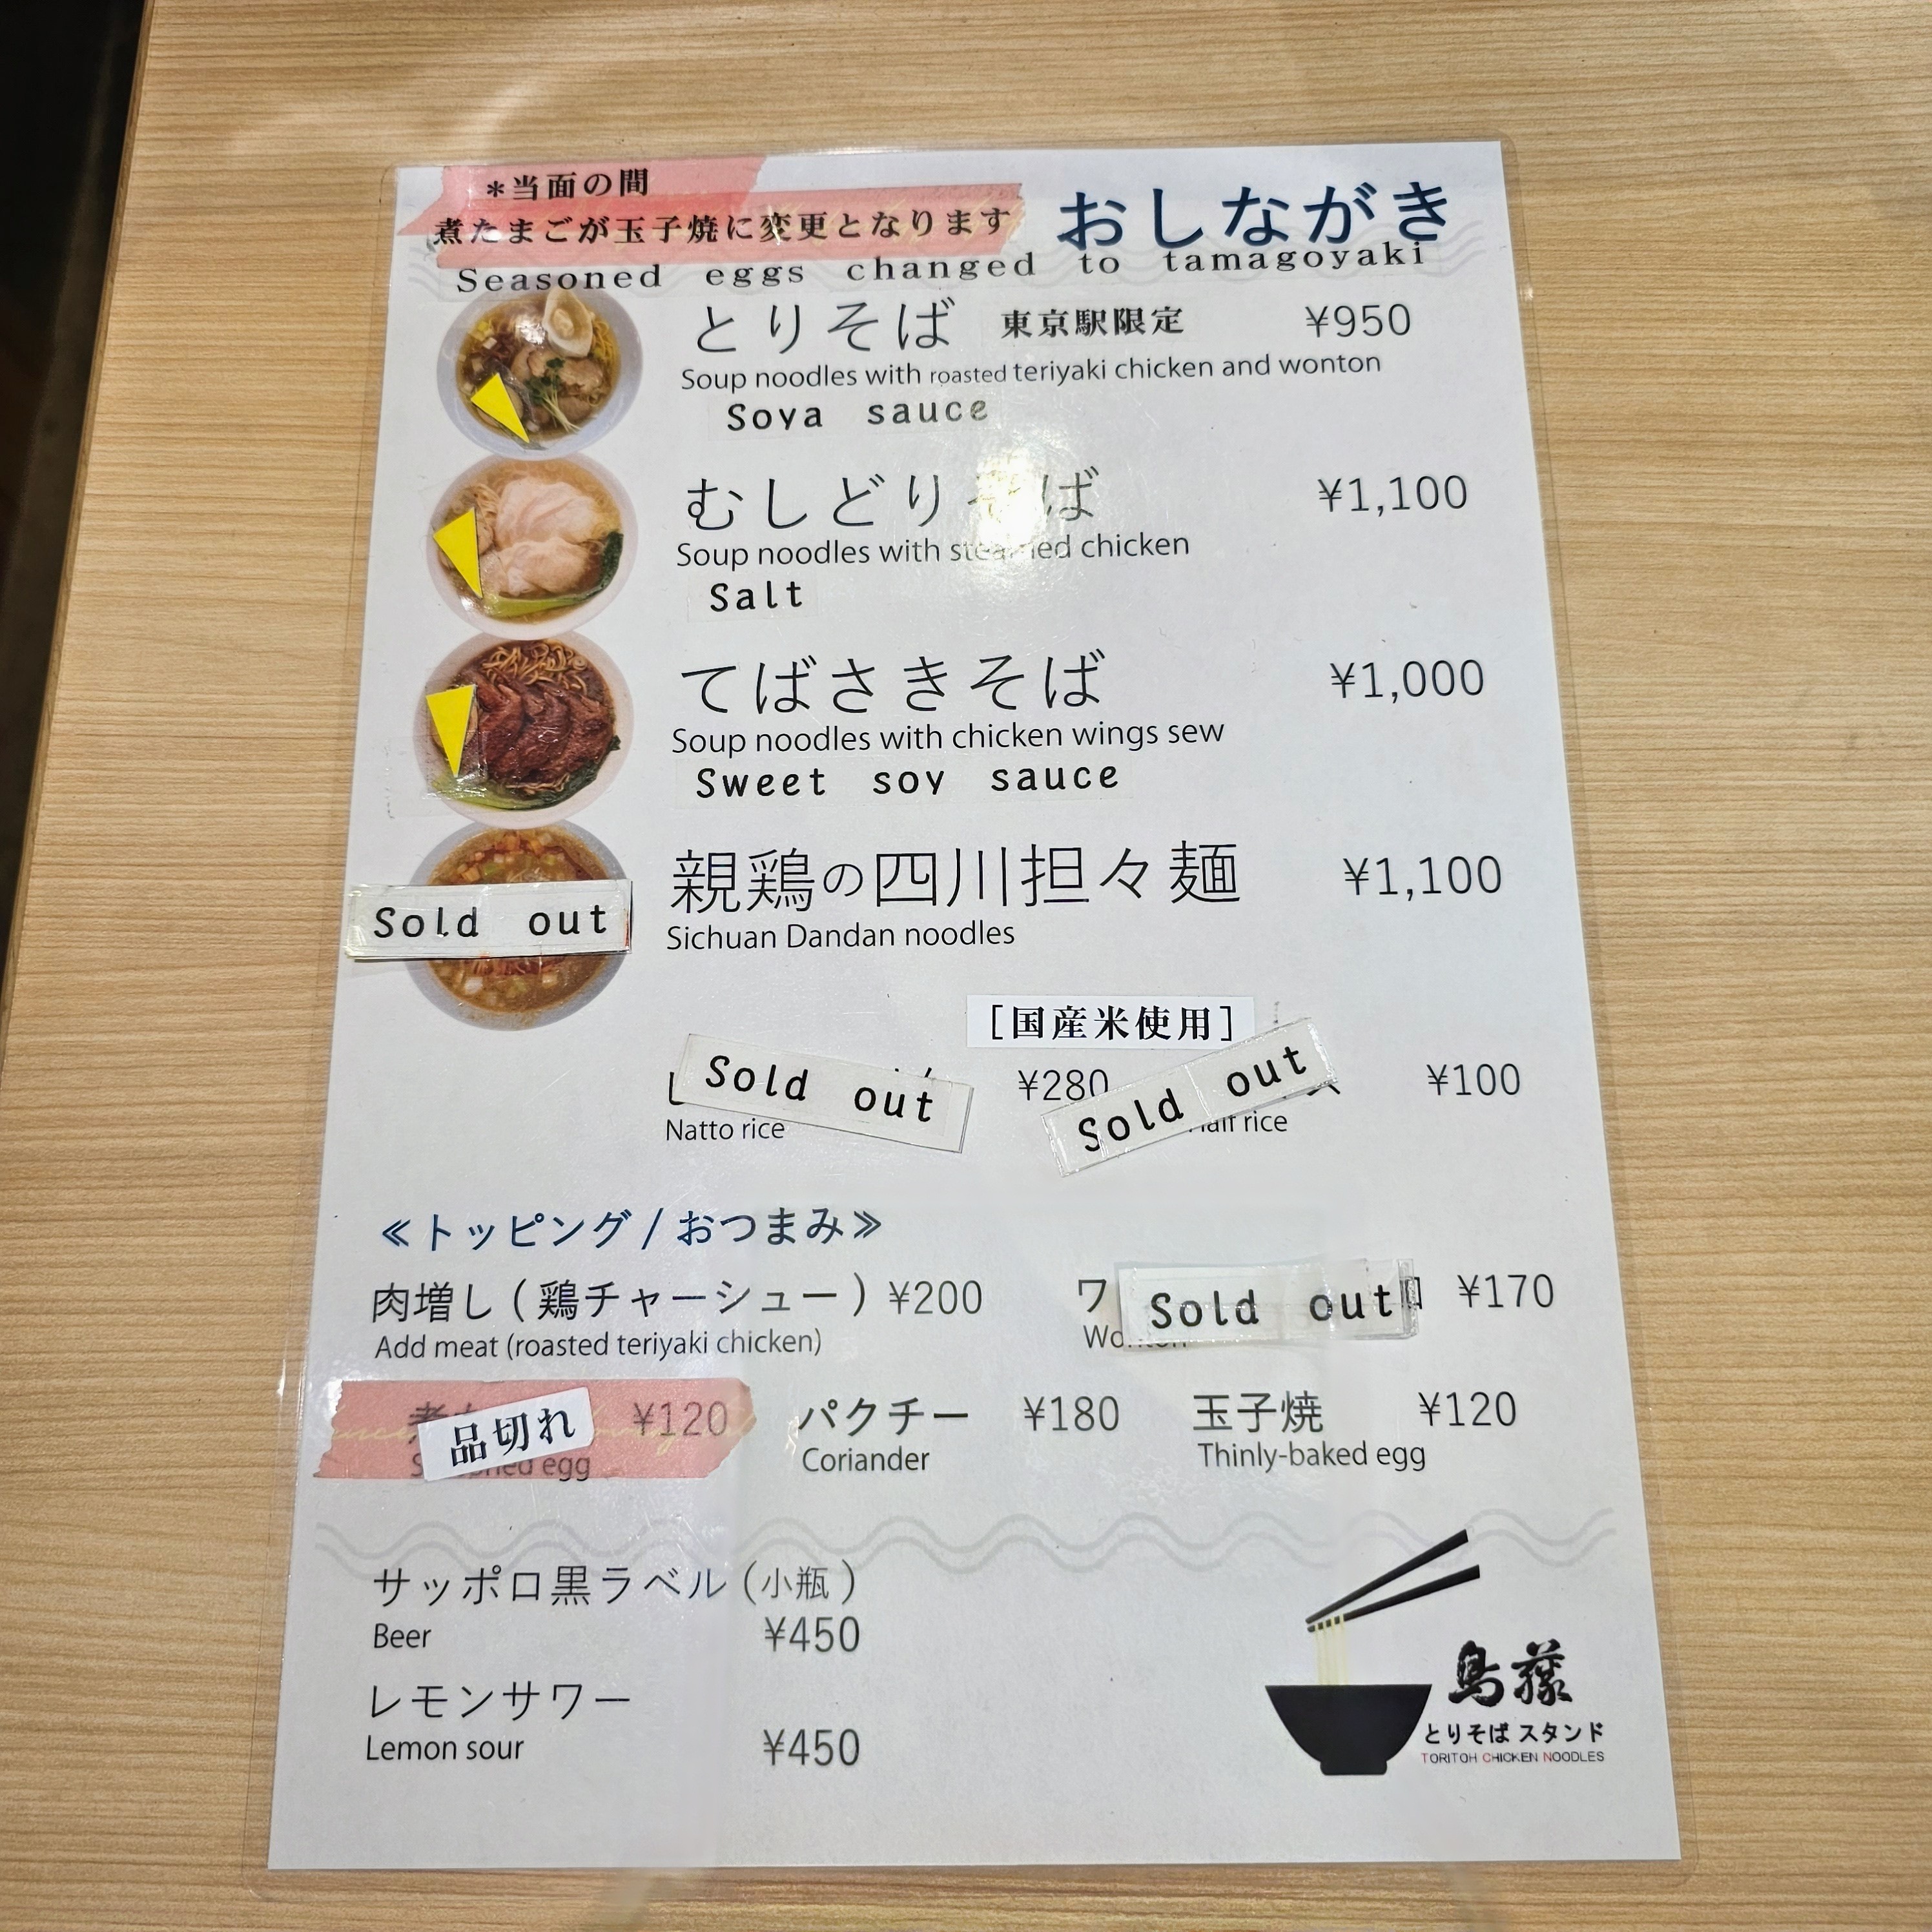 *当面の間
煮たまごが玉子焼に変更となります
おしながき
Seasoned eggs changed to tamagoyaki
とりそば 東京駅限定 ¥950
Soup noodles with roasted teriyaki chicken and wonton
Soya sauce
むしどりそば ¥1,100
Soup noodles with steamed chicken
Salt
てばさきそば ¥1,000
Soup noodles with chicken wings sew
Sweet soy sauce
親鶏の四川担々麺 ¥1,100
Sold out
Sichuan Dandan noodles
[国産米使用]
Sold out ¥280 Sold out ¥100
Natto rice Half rice
≪トッピング / おつまみ≫
肉増し ( 鶏チャーシュー ) ¥200 ワ Sold out ¥170
Add meat (roasted teriyaki chicken) Wonton
品切れ ¥120 パクチー ¥180 玉子焼 ¥120
Seasoned egg Coriander Thinly-baked egg
サッポロ黒ラベル (小瓶)
Beer ¥450
レモンサワー
Lemon sour ¥450
鳥藤
とりそば スタンド
TORITOH CHICKEN NOODLES